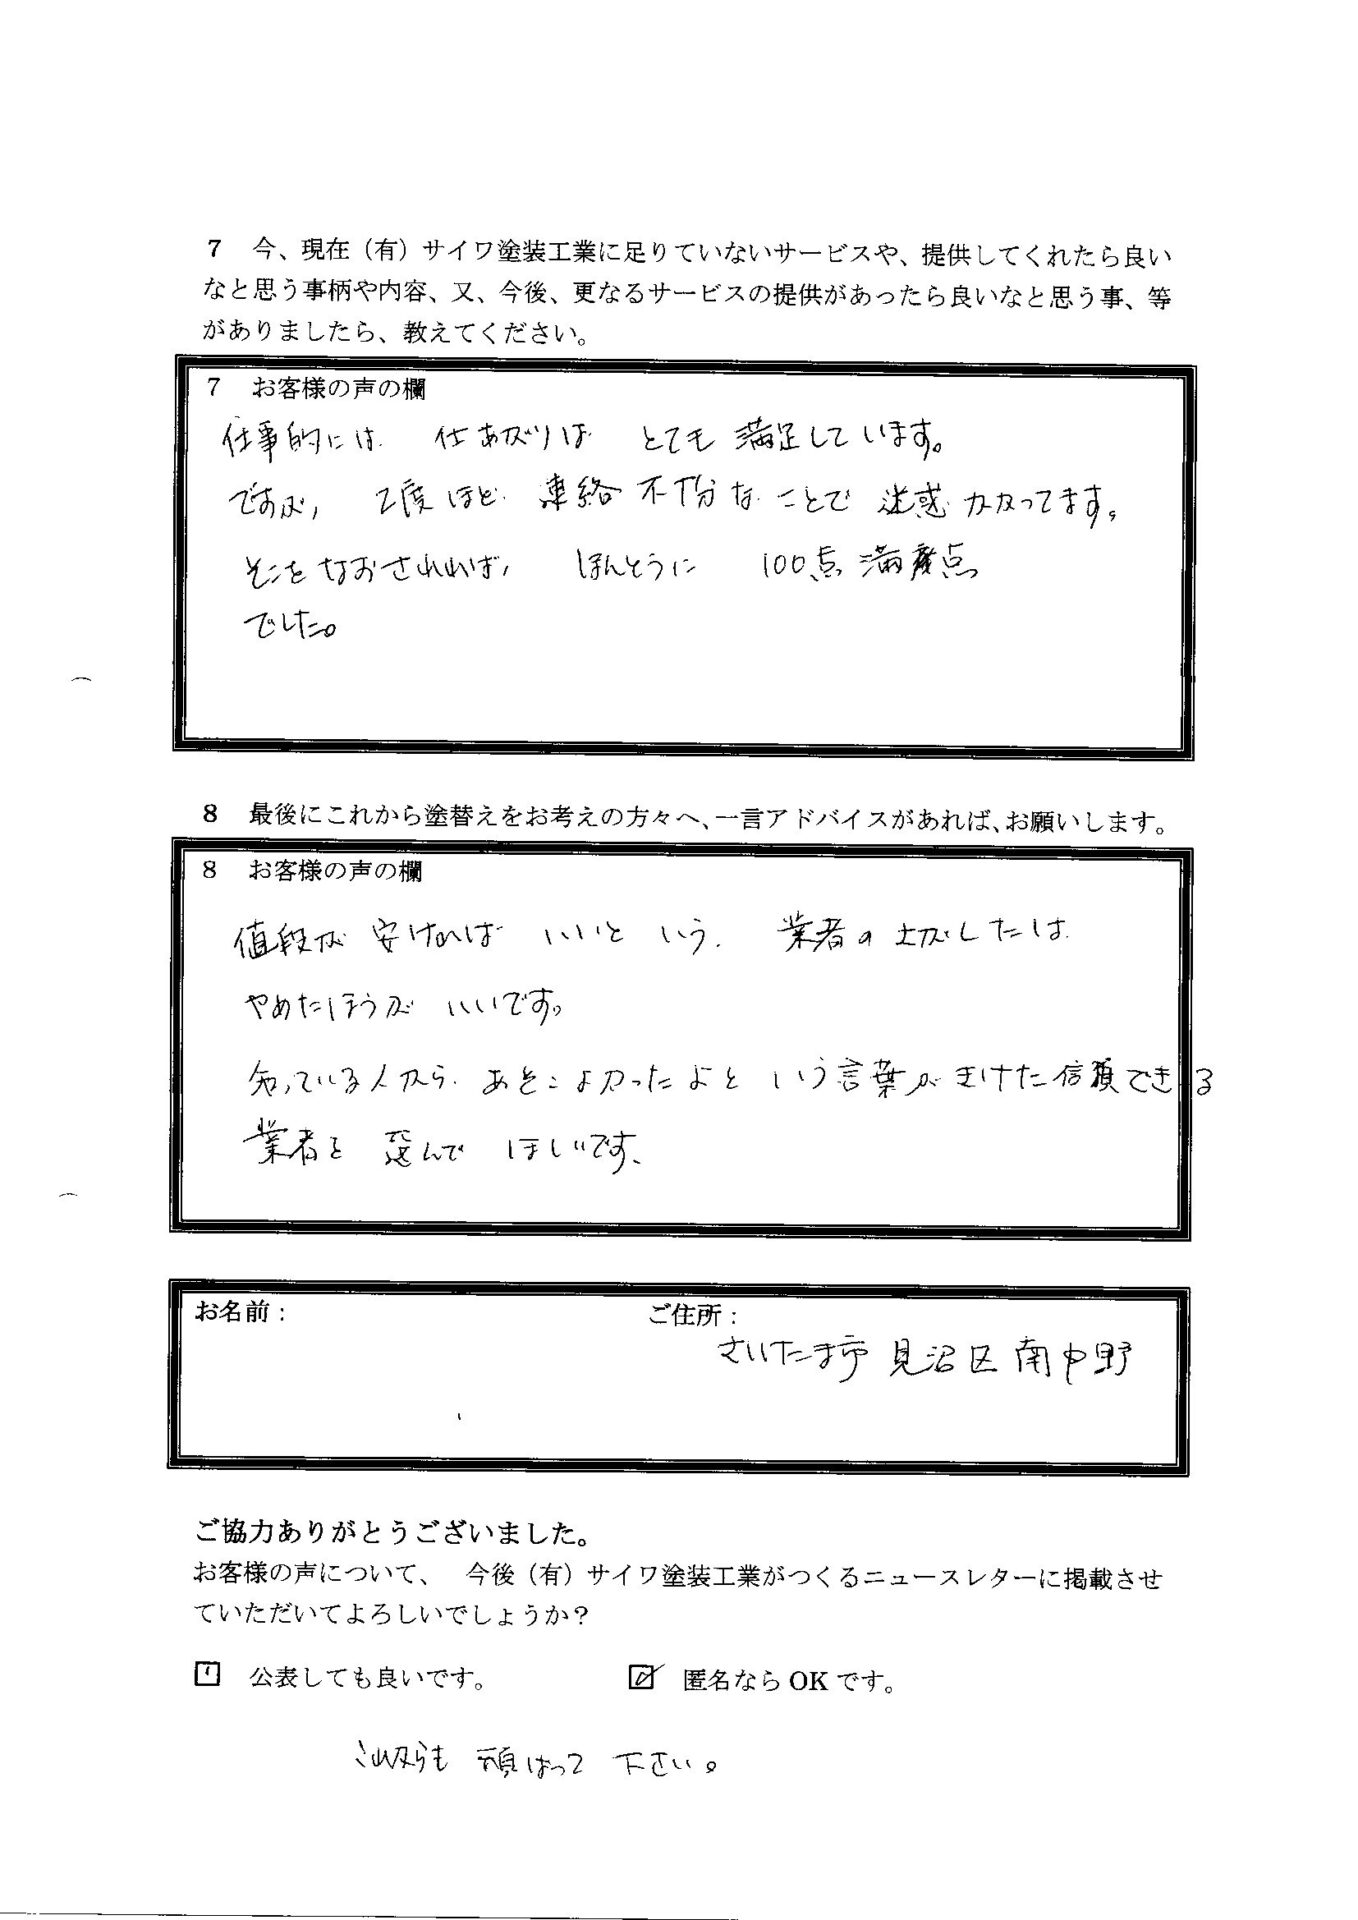 7 今、現在（有）サイワ塗装工業に足りていないサービスや、提供してくれたら良い
なと思う事柄や内容、又、今後、更なるサービスの提供があったら良いなと思う事、等
がありましたら、教えてください。
7 お客様の声の欄
仕事的には 仕あがりは とても 満足しています。
ですが、 2度ほど 連絡不十分な ことで 迷惑かかってます。
そこをなおされれば、 ほんとうに 100点満点
でした。
8 最後にこれから塗替えをお考えの方々へ、一言アドバイスがあれば、お願いします。
8 お客様の声の欄
値段が 安ければ いいと いう 業者の さがしたは
やめたほうが いいです。
知っている人から あそこよかったよと いう言葉が きけた信頼できる
業者を 選んで ほしいです、
お名前： ご住所：
さいたま市 見沼区 南中野
ご協力ありがとうございました。
お客様の声について、 今後（有）サイワ塗装工業がつくるニュースレターに掲載させ
ていただいてよろしいでしょうか？
□ 公表しても良いです。 ☑ 匿名なら OK です。
これからも 頑ばって 下さい。